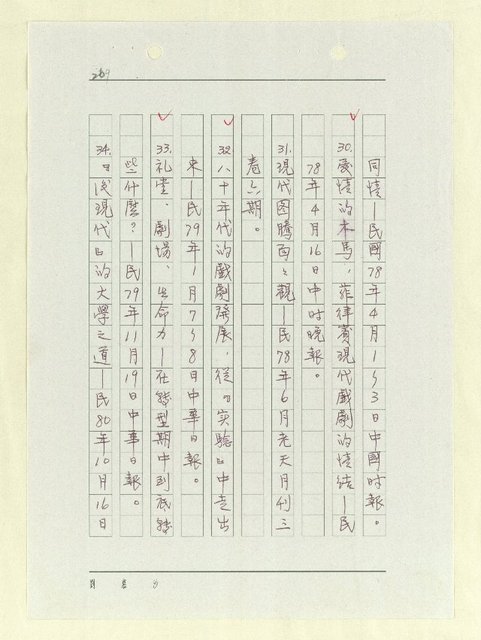 269
同情—民國78年4月1~3日中國时報。
30.愛情的木馬，菲律賓現代戲劇的情结—民
78年4月16日中时晚報。
31.現代图騰面々觀—民78年6月光天月刊三
卷六期。
32.八十年代的戲劇發展，從『实驗』中走出
來—民79年1月7~8日中華日報。
33.礼堂、劇場、生命力—在轉型期中到底轉
些什麽？—民79年11月19日中華日報。
34.『後現代』的大學之道—民80年10月16日